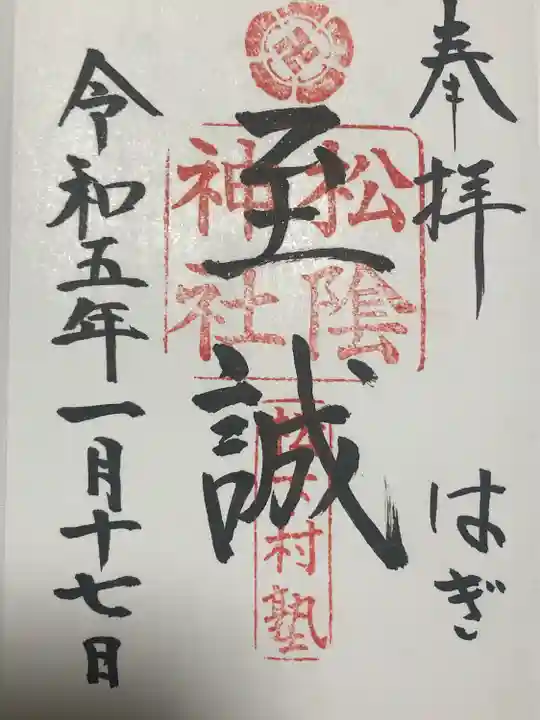 奉拝
はぎ
至誠
松陰神社
松下村塾
令和五年一月十七日